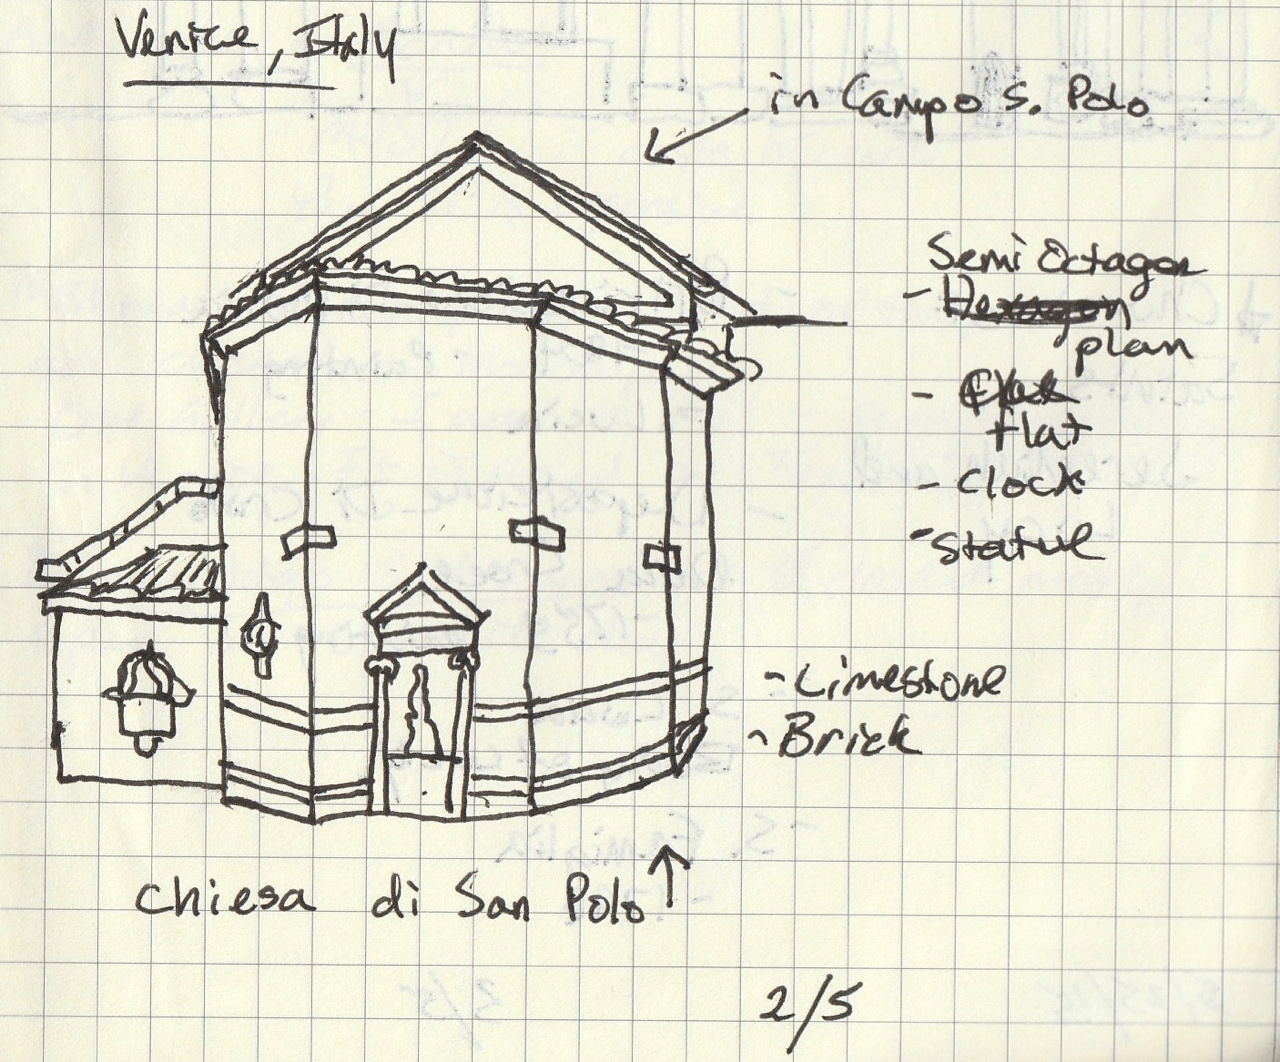 Venice, Italy
in Campo S. Polo
Semi Octagon
- Hexagon
plan
-
flat
- Clock
- Statue
- Limestone
- Brick
Chiesa di San Polo
2/5